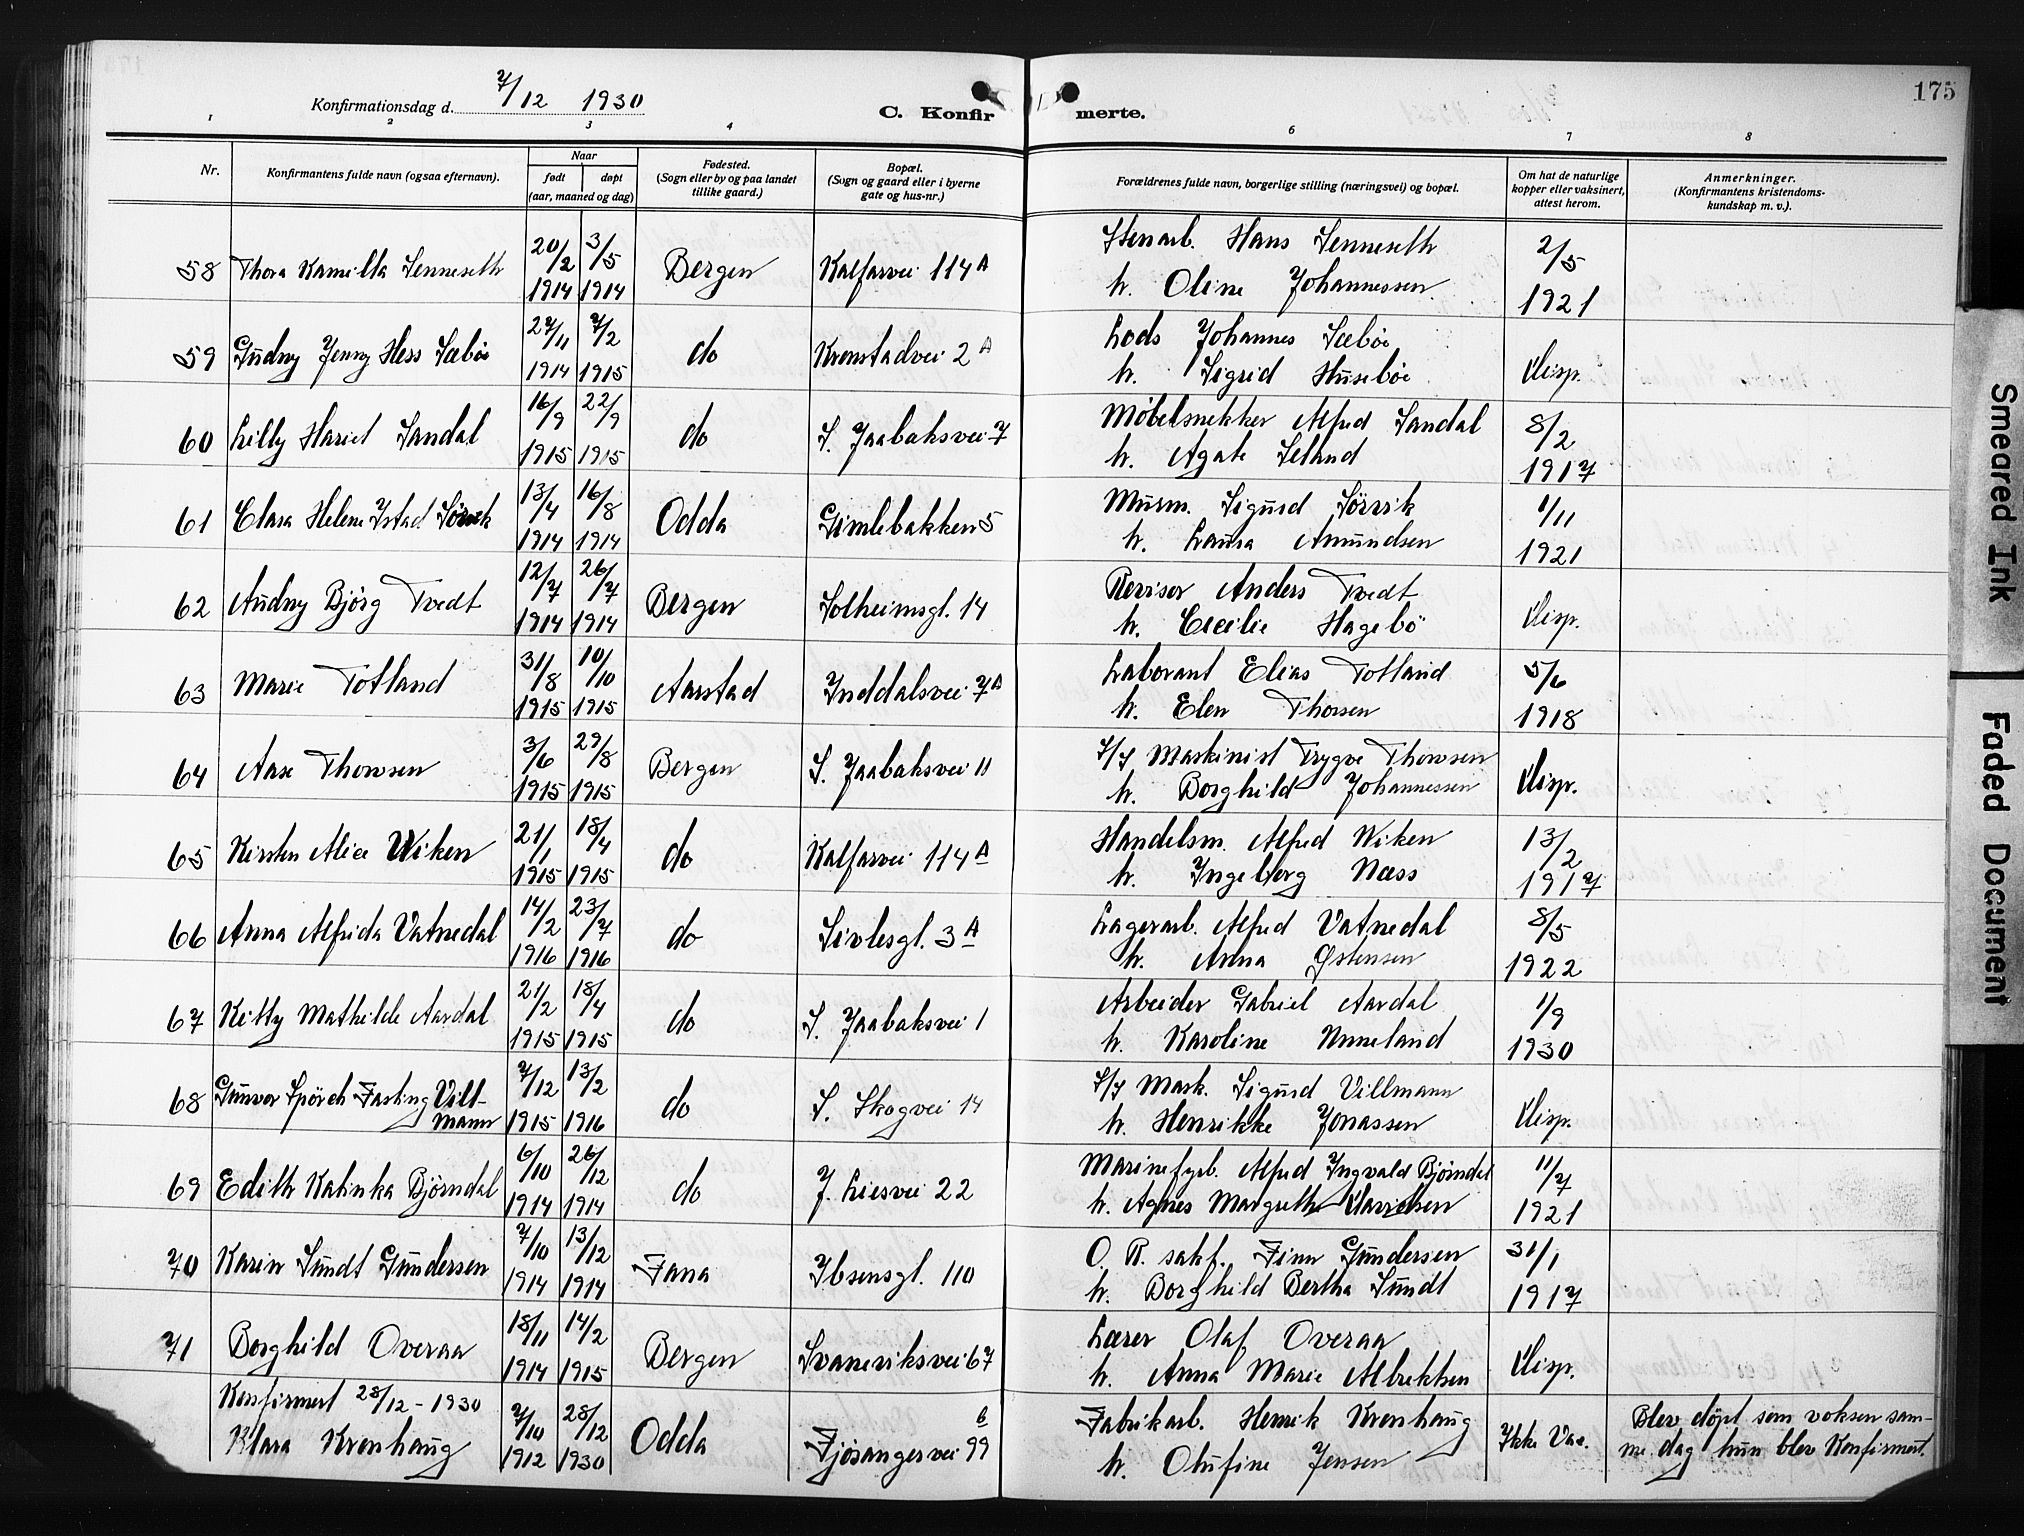 175
Konfirmationsdag d. 7/12 1930
C. Konfirmerte.
1 2 3 4 6 7 8
Nr.
Konfirmantens fulde navn (ogsaa efternavn).
Naar
født døpt
(aar, maaned og dag)
Fødested.
(Sogn eller by og paa landet
tillike gaard.)
Bopæl.
(Sogn og gaard eller i byerne
gate og hus-nr.)
Forældrenes fulde navn, borgerlige stilling (næringsvei) og bopæl.
Om hat de naturlige
kopper eller vaksinert,
attest herom.
Anmerkninger.
(Konfirmantens kristendoms-
kundskap m. v.).
58 Thora Kamilla Senneseth 20/2 1914 3/5 1914 Bergen Kalfarvei 114A Stenarb. Hans Senneseth
h. Oline Johannessen 2/5 1921
59 Gudny Jenny Hess Sæbøe 27/11 1914 7/2 1915 do Kronstadvei 2A Lods Johannes Sæbøe
h. Sigrid Husebøe Disp.
60 Lilly Hariet Sandal 16/9 1915 22/9 1915 do S. Jaabaksvei 7 Møbelsnekker Alfred Sandal
h. Agate Leland 8/2 1917
61 Clara Helene Ystad Sørvik 13/4 1914 16/8 1914 Odda Gimlebakken 5 Murm. Sigurd Sörvik
h. Laura Amundsen 1/11 1921
62 Audny Bjørg Tvedt 12/7 1914 26/7 1914 Bergen Solheimsgt. 14 Revisor Anders Tvedt
h. Cecilie Hagebö Disp.
63 Marie Totland 31/8 1915 10/10 1915 Aarstad Inddalsvei 7A Laborant Elias Totland
h. Elen Thorsen 5/6 1918
64 Aase Thowsen 3/6 1915 29/8 1915 Bergen S. Jaabaksvei 11 S/S Maskinist Trygve Thowsen
h. Borghild Johannessen Disp.
65 Kirsten Alice Wiken 21/1 1915 18/4 1915 do Kalfarvei 114A Handelsm. Alfred Wiken
h. Ingeborg Næss 13/2 1917
66 Anna Alfrida Vatnedal 14/2 1916 23/7 1916 do Sivlesgt. 3A Lagerarb. Alfred Vatnedal
h. Anna Østensen 8/5 1922
67 Kitty Mathilde Aardal 21/2 1915 18/4 1915 do S. Jaabaksvei 1 Arbeider Gabriel Aardal
h. Karoline Unneland 1/9 1930
68 Gunvor Spörck Fasting Vill-
mann 7/12 1915 13/2 1916 do S. Skogvei 14 S/S Mask. Sigurd Villmann
h. Henrikke Jonassen Disp.
69 Edith Katinka Björndal 6/10 1914 26/12 1914 do J. Liesvei 22 Marinefyrb. Alfred Ingvald Björndal
h. Agnes Margrethe 11/7 1921
70 Karin Sundt Gundersen 7/10 1914 13/12 1914 Fana Ibsensgt. 110 O. R. sakf. Finn Gundersen
h. Borghild Bertha Sundt 31/1 1917
71 Borghild Overaa 18/11 1914 14/2 1915 Bergen Svaneviksvei 67 Lærer Olaf Overaa
h. Anna Marie Albrektsen Disp.
Konfirmert 28/12 - 1930
Klara Kronhaug 7/10 1912 28/12 1930 Odda Fjøsangervei 99 b Fabrikarb. Henrik Kronhaug
h. Olufine Jensen Ikke Vac. Blev döpt som voksen sam-
me dag hun blev Konfirmert.
Smeared Ink
Faded Document